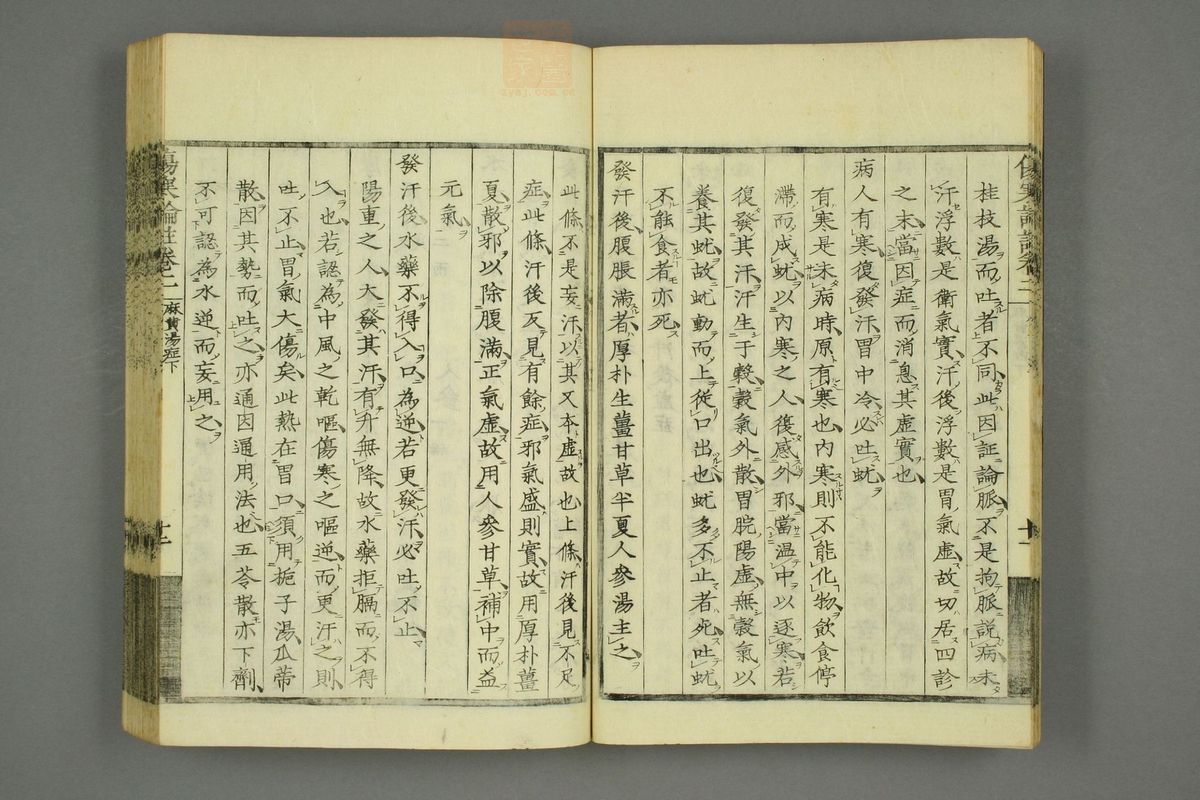 桂枝湯而吐者不同此因証論脈不是拘脈説病未
汗浮數是衛氣實汗後浮數是胃氣虛故切居四診
之末當因症而消息其虛實也
病人有寒復發汗胃中冷必吐蚘
有寒是未病時原有寒也內寒則不能化物飲食停
滯而成蚘以內寒之人復感外邪當温中以逐寒若
復發其汗汗生于穀穀氣外散胃脘陽虛無穀氣以
養其蚘故蚘動而上從口出也蚘多不止者死吐蚘
不能食者亦死
發汗後腹脹滿者厚朴生薑甘草半夏人參湯主之
此條不是妄汗以其又本虛故也上條汗後見不足
症此條汗後反見有餘症邪氣盛則實故用厚朴薑
夏散邪以除腹滿正氣虛故用人參甘草補中而益
元氣
發汗後水藥不得入口為逆若更發汗必吐不止
陽重之人大發其汗有升無降故水藥拒膈而不得
入也若認為中風之乾嘔傷寒之嘔逆而更汗之則
吐不止胃氣大傷矣此熱在胃口須用梔子湯瓜蒂
散因其勢而吐之亦通因通用法也五苓散亦下劑
不可認為水逆而妄用之
傷寒論註卷二 麻黃湯症下